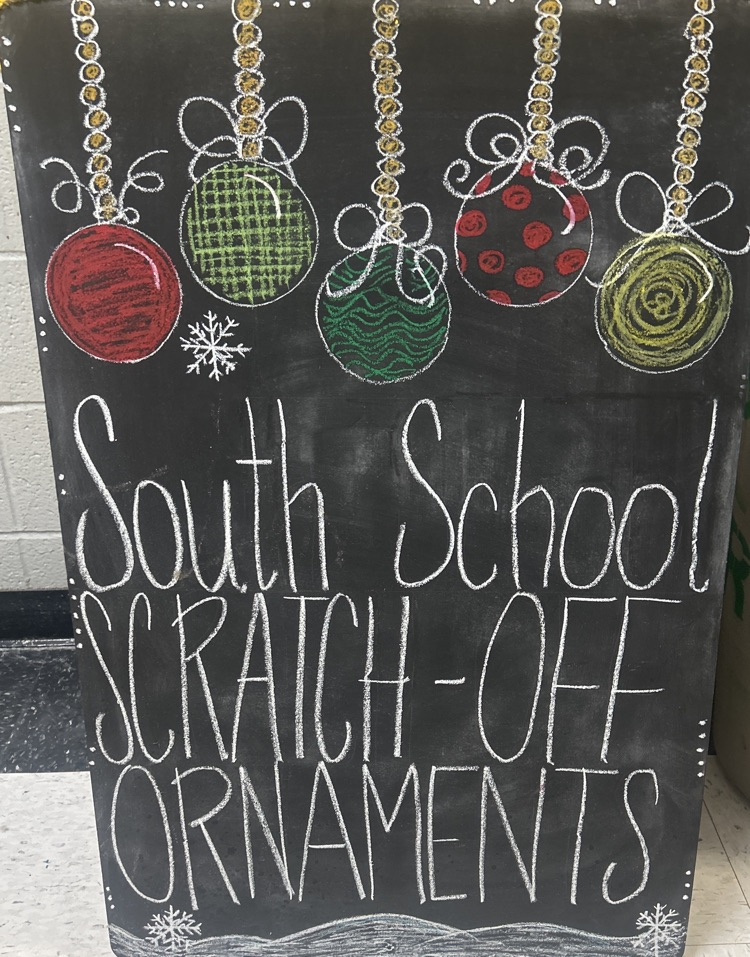 South School
SCRATCH-OFF
ORNAMENTS